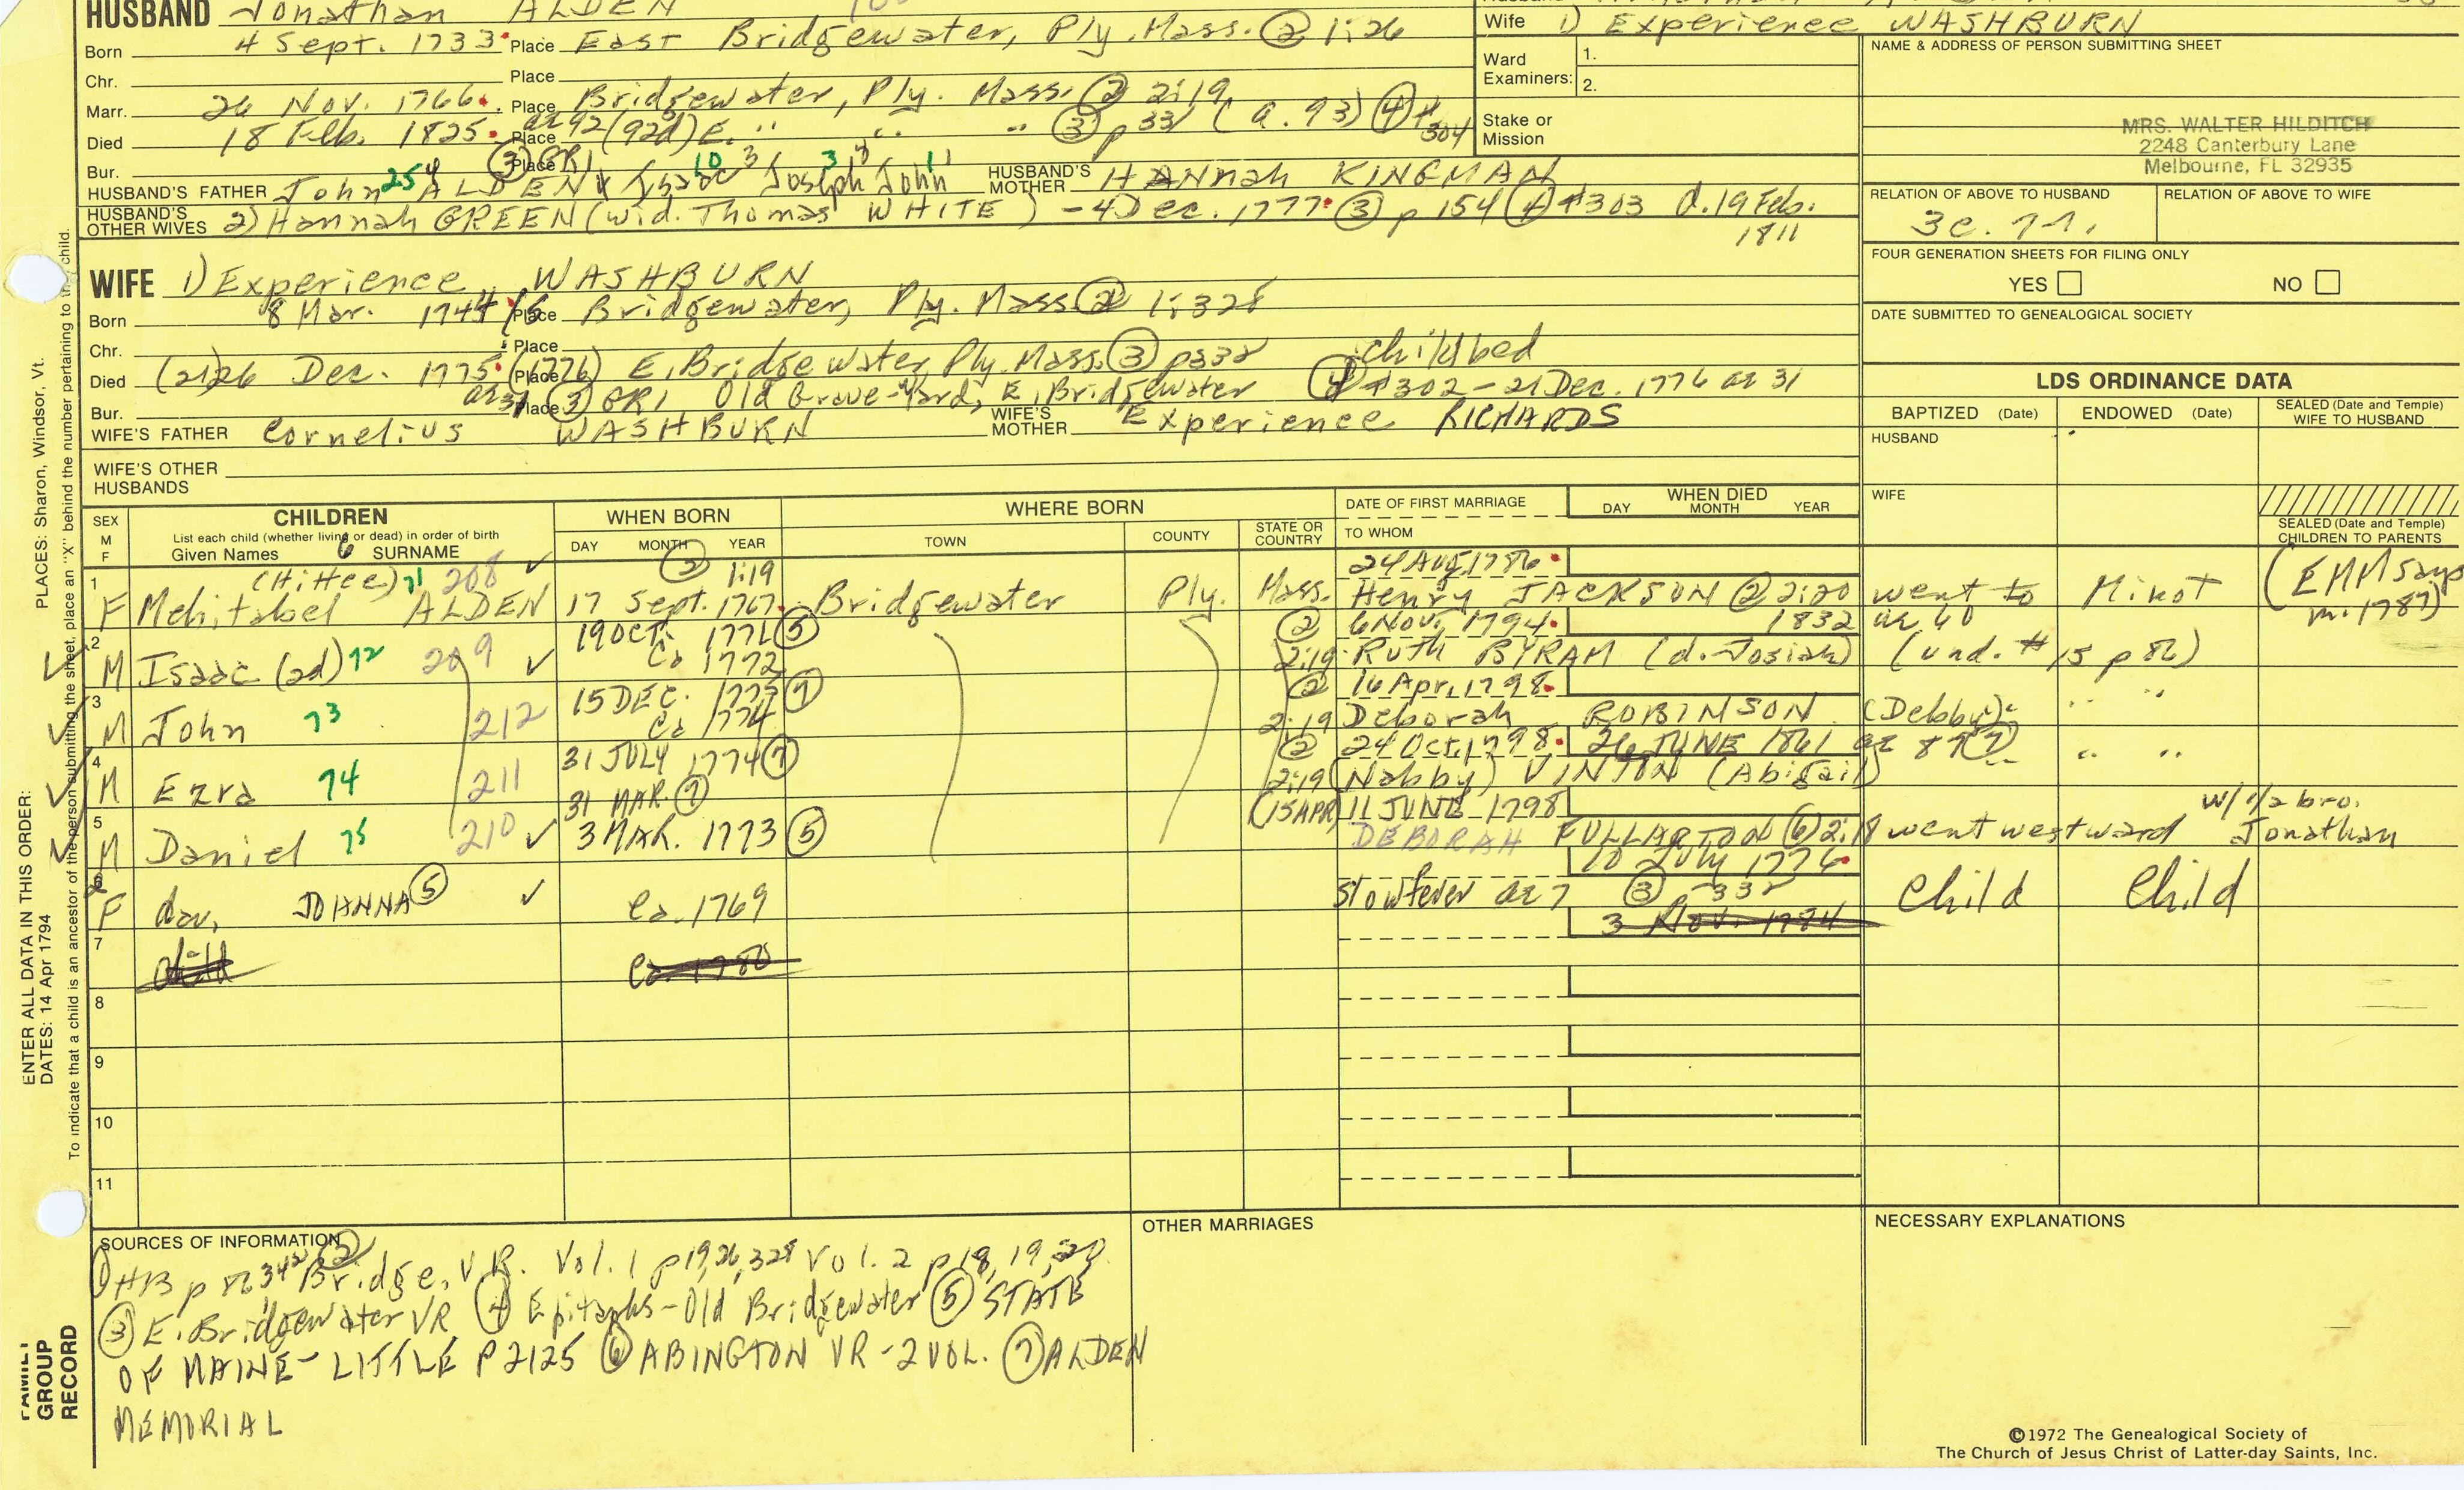 HUSBAND Jonathan ALDEN
Wife 1) Experience WASHBURN
Born 4 Sept. 1733 Place East Bridgewater, Ply. Mass. ② 1:26
NAME & ADDRESS OF PERSON SUBMITTING SHEET
Ward Examiners: 1.
2.
Chr. Place
Marr. 26 Nov. 1766 Place Bridgewater, Ply. Mass. ② 2:19
Died 18 Feb. 1825 ae 92 (92d) Place E. " " " ③ p 331 (a. 93) ④ #304
Stake or Mission
MRS. WALTER HILDITCH
2248 Canterbury Lane
Melbourne, FL 32935
Bur. Place ③ GR1
HUSBAND'S FATHER John 25 4 ALDEN Isaac 10 3 Joseph 3 John 1
HUSBAND'S MOTHER HANNah KINGMAN
RELATION OF ABOVE TO HUSBAND
RELATION OF ABOVE TO WIFE
HUSBAND'S OTHER WIVES 2) Hannah GREEN (wid. Thomas WHITE) - 4 Dec. 1777 ③ p 154 ④ #303 d. 19 Feb. 1811
FOUR GENERATION SHEETS FOR FILING ONLY
YES NO
WIFE 1) Experience WASHBURN
Born 8 Mar. 1744/5 Place Bridgewater, Ply. Mass ② 1:328
DATE SUBMITTED TO GENEALOGICAL SOCIETY
Chr. Place
Died (21) 26 Dec. 1775 (1776) Place E. Bridgewater, Ply. Mass. ③ p332 childbed
Bur. ae 31 Place ③ GR1 Old Grave-Yard, E. Bridgewater ④ #302 - 21 Dec. 1776 ae 31
WIFE'S FATHER Cornelius WASHBURN
WIFE'S MOTHER Experience RICHARDS
LDS ORDINANCE DATA
BAPTIZED (Date) ENDOWED (Date) SEALED (Date and Temple) WIFE TO HUSBAND
HUSBAND
WIFE'S OTHER HUSBANDS
WIFE
SEALED (Date and Temple) CHILDREN TO PARENTS
SEX M F
CHILDREN
List each child (whether living or dead) in order of birth
Given Names 6 SURNAME
WHEN BORN
DAY MONTH YEAR
WHERE BORN
TOWN COUNTY STATE OR COUNTRY
DATE OF FIRST MARRIAGE
TO WHOM
WHEN DIED
DAY MONTH YEAR
1 (Hittee) 71 208 ✓ ② 1:19 24 Aug 1786
F Mehitabel ALDEN 17 Sept. 1767 Bridgewater Ply. Mass. Henry JACKSON ② 2:20 went to Minot (EMM says m. 1787)
2 19 OCT. 1771 ⑤ ② 6 Nov. 1794 1832 ae 60
M Isaac (2d) 72 209 ✓ Ca 1772 2:19 Ruth BYRAM (d. Josiah) (und. #15 p 82)
3 15 DEC. 1773 ⑦ ② 16 Apr. 1798
M John 73 212 Ca 1774 2:19 Deborah ROBINSON (Debby) " "
4 31 JULY 1774 ⑦ ② 24 Oct. 1798 26 JUNE 1861 ae 87 ⑦ " "
M Ezra 74 211 2:19 (Nabby) VINTON (Abigail)
5 31 MAR. ⑦ (15 APR) 11 JUNE 1798
M Daniel 75 210 ✓ 3 MAR. 1773 ⑤ DEBORAH FULLARTON ⑥ 2:18 went westward w/ 1/2 bro. Jonathan
6 10 July 1776
F dau. JOHNNA ⑤ ✓ Ca. 1769 Slow fever ae 7 ③ p 332 Child Child
3 Nov. 1784
7 child Ca. 1780
8
9
10
11
SOURCES OF INFORMATION
① HB p 82 ② Bridge. V.R. Vol. 1 p 19, 26, 328 Vol. 2 p 18, 19, 20
③ E. Bridgewater VR ④ Epitaphs - Old Bridgewater ⑤ STATE
OF MAINE - LITTLE P 2125 ⑥ ABINGTON VR - 2 VOL. ⑦ ALDEN
MEMORIAL
OTHER MARRIAGES
NECESSARY EXPLANATIONS
©1972 The Genealogical Society of
The Church of Jesus Christ of Latter-day Saints, Inc.
ENTER ALL DATA IN THIS ORDER:
DATES: 14 Apr 1794
PLACES: Sharon, Windsor, Vt.
To indicate that a child is an ancestor of the person submitting the sheet, place an "X" behind the number pertaining to child.
FAMILY GROUP RECORD